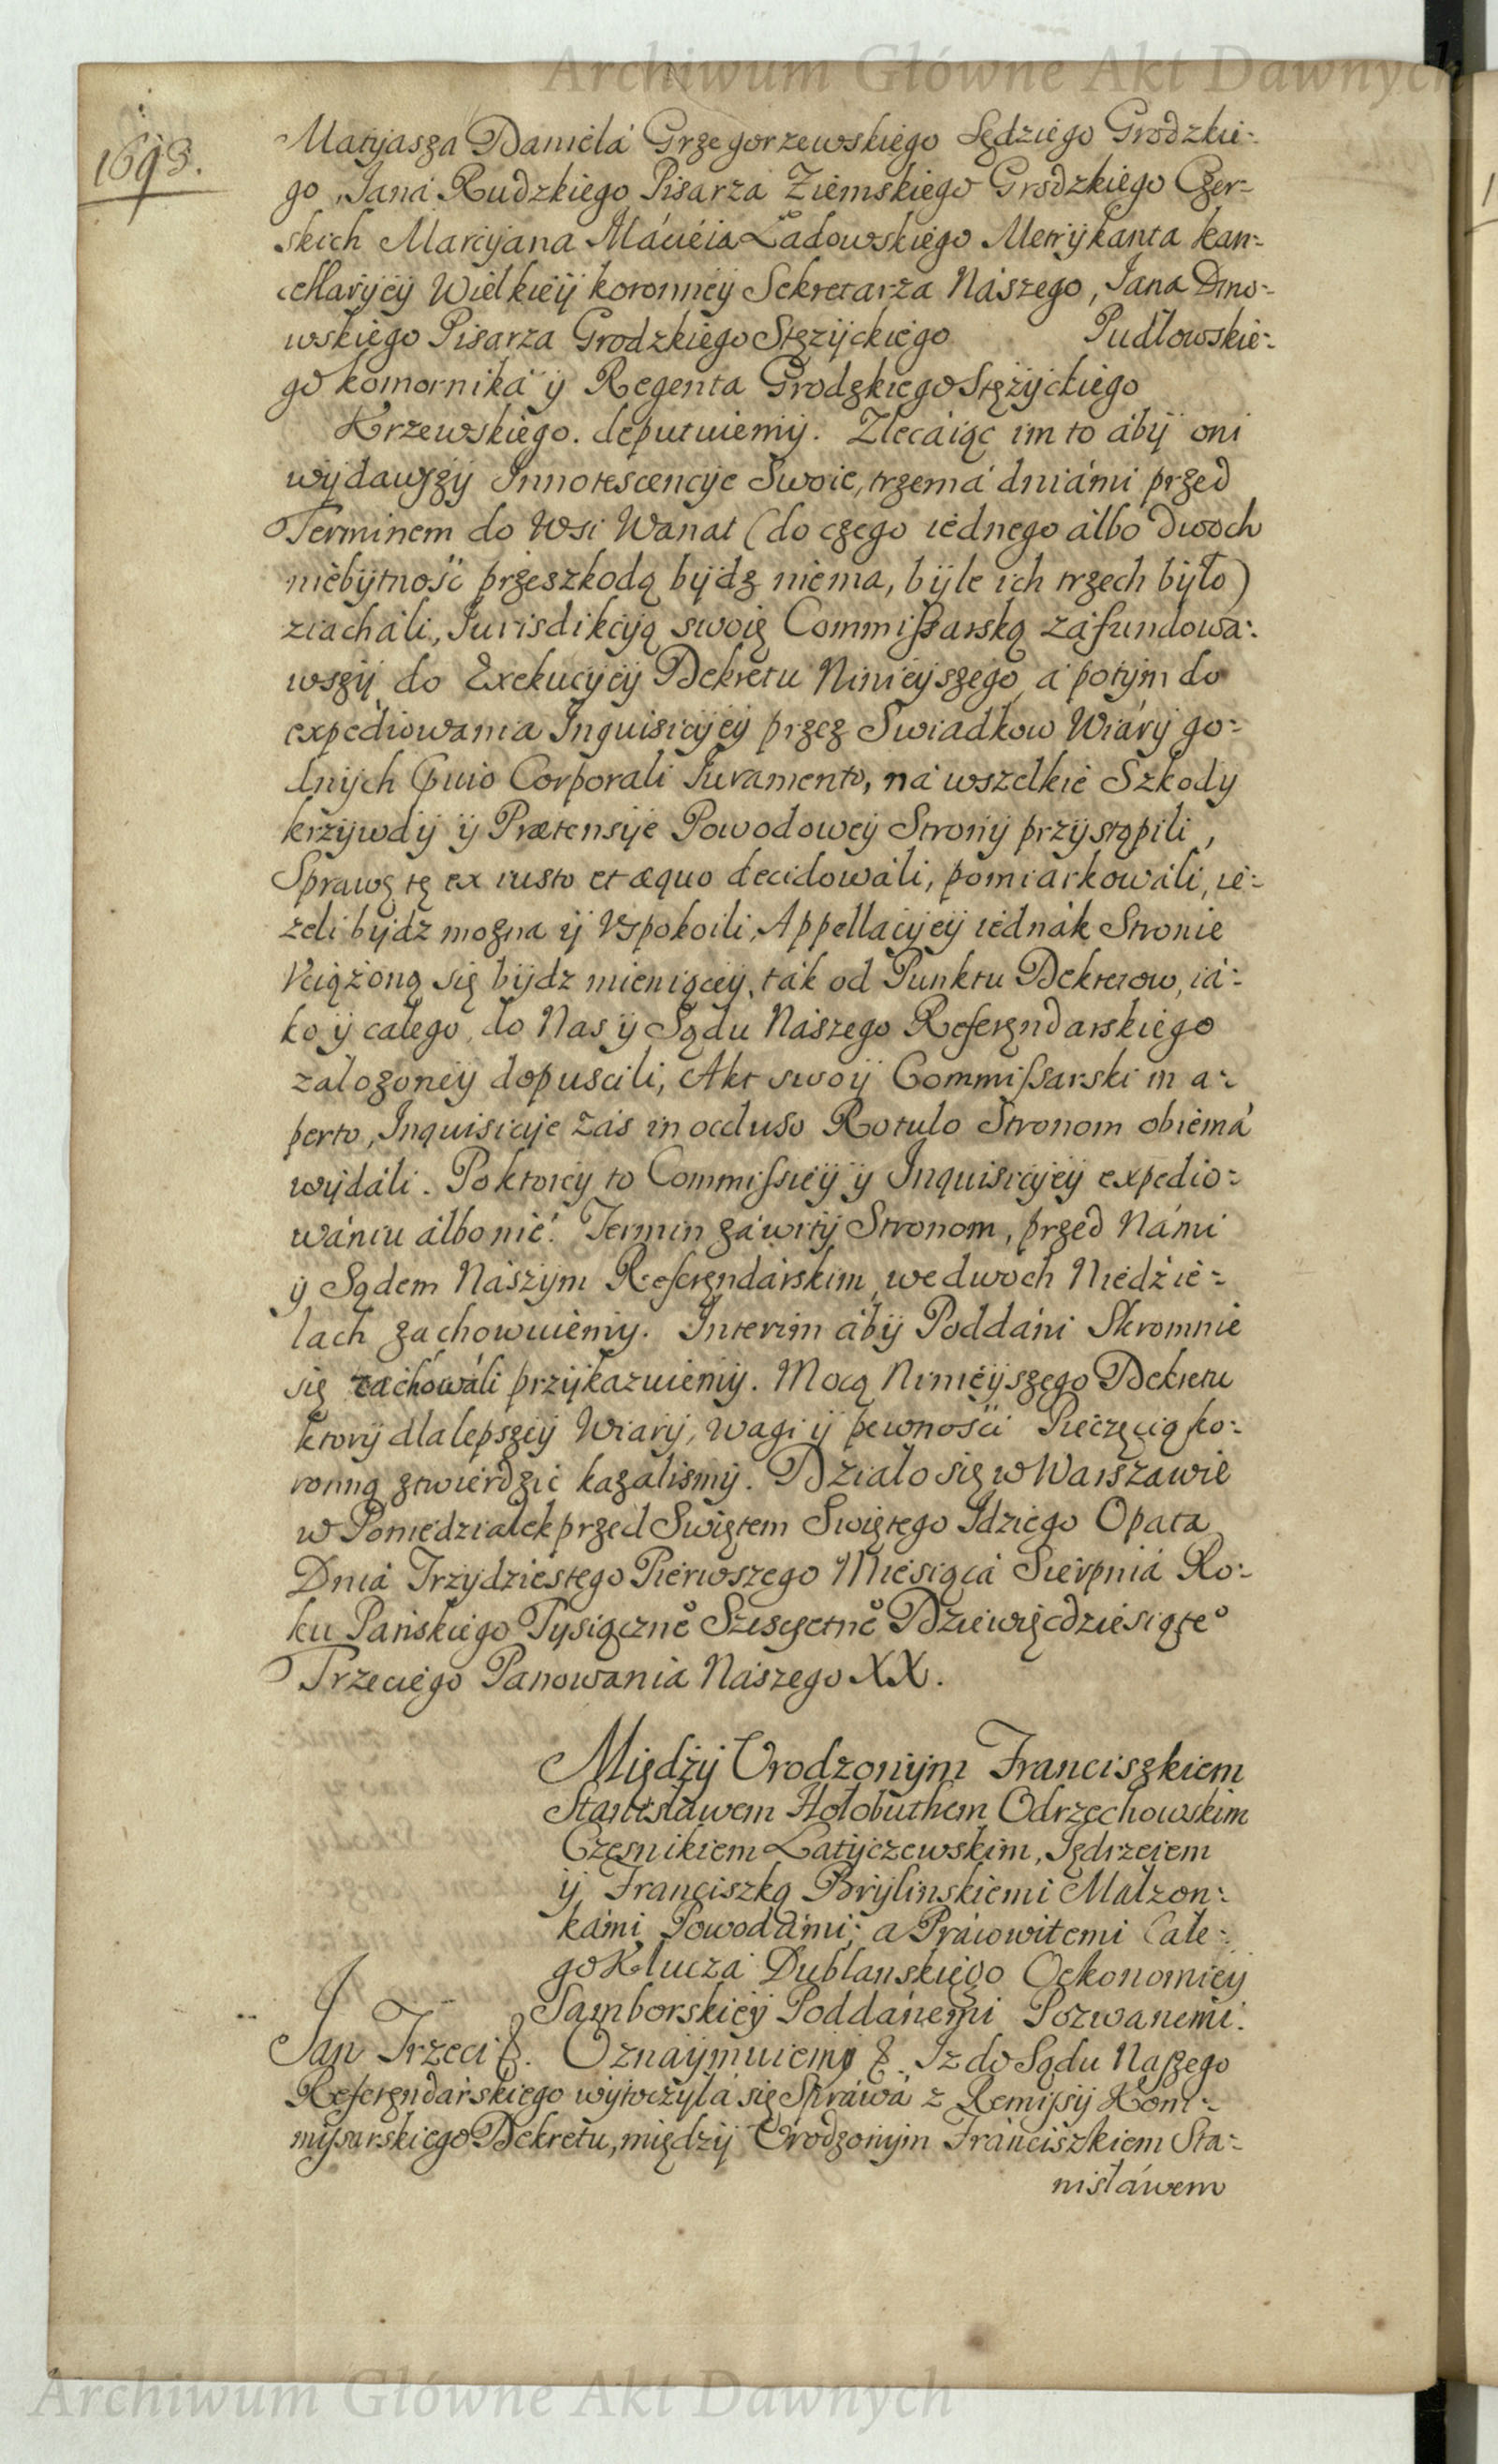 Archiwum Główne Akt Dawnych
1693.
Matyjasza Daniela Grzegorzewskiego Sędziego Grodzkie-
go, Jana Rudzkiego Pisarza Ziemskiego Grodzkiego Czer-
skich Marcyjana Macieia Ładowskiego Metrykanta kan-
cellaryjey Wielkiey koronney Sekretarza Naszego, Jana Dmo-
wskiego Pisarza Grodzkiego Stężyckiego Pudłowskie-
go komornika y Regenta Grodzkiego Stężyckiego
Krzewskiego. deputuiemy. Zlecaiąc im to aby oni
wydawszy Innotescencyje Swoie, trzema dniami przed
Terminem do Wsi Wanat (do czego iednego albo dwoch
niebytność przeszkodą bydz niema, byle ich trzech było)
ziachali, Jurisdikcyją swoię Commissarską zafundowa-
wszy do Exekucyjey Dekretu Ninieyszego, a potym do
expediowania Inquisicyjey przez Swiadkow Wiary go-
dnych Quio Corporali Juramento, na wszelkie Szkody
krzywdy y Prætensyje Powodowey Strony przystąpili,
Sprawę tę ex iusto et æquo decidowali, pomiarkowali, ie-
żeli bydz można y Vspokoili, Appellacyjey iednak Stronie
Vciążoną się bydz mieniącey, tak od Punktu Dekretow, ia-
ko y całego, do Nas y Sądu Naszego Referęndarskiego
założoney dopuscili, Akt swoy Commissarski in a-
perto, Inquisicyje zas in occluso Rotulo Stronom obiema
wydali. Po ktorey to Commissiey y Inquisicyjey expedio-
waniu albo nie. Termin zawity Stronom, przed Nami
y Sądem Naszym Referęndarskim, we dwoch Niedzie-
lach zachowuiemy. Interim aby Poddani Skromnie
się zachowali przykazuiemy. Mocą Ninieyszego Dekretu
ktory dla lepszey Wiary, wagi y pewności Pieczęcią ko-
ronną ztwierdzić kazalismy. Działo się w Warszawie
w Poniedziałek przed Swiętem Swiętego Idziego Opata
Dnia Trzydziestego Pierwszego Miesiąca Sierpnia Ro-
ku Pańskiego Tysiączneº Szescsetneº Dziewięcdziesiąteº
Trzeciego Panowania Naszego XX.
Między Vrodzonym Franciszkiem
Stanisławem Hołobuthem Odrzechowskim
Cześnikiem Latyczewskim, Jędrzeiem
y Franciszką Brylinskiemi Małzon-
kami Powodami; a Pracowitemi Całe-
go Klucza Dublanskiego Oekonomiey
Samborskiey Poddanemi Pozwanemi.
Jan Trzeci &. Oznaymuiemy &. Iz do Sądu Naszego
Referęndarskiego wytoczyła się Sprawa z Remissy Kom-
mysarskiego Dekretu, między Vrodzonym Franciszkiem Sta-
nisławem
Archiwum Główne Akt Dawnych